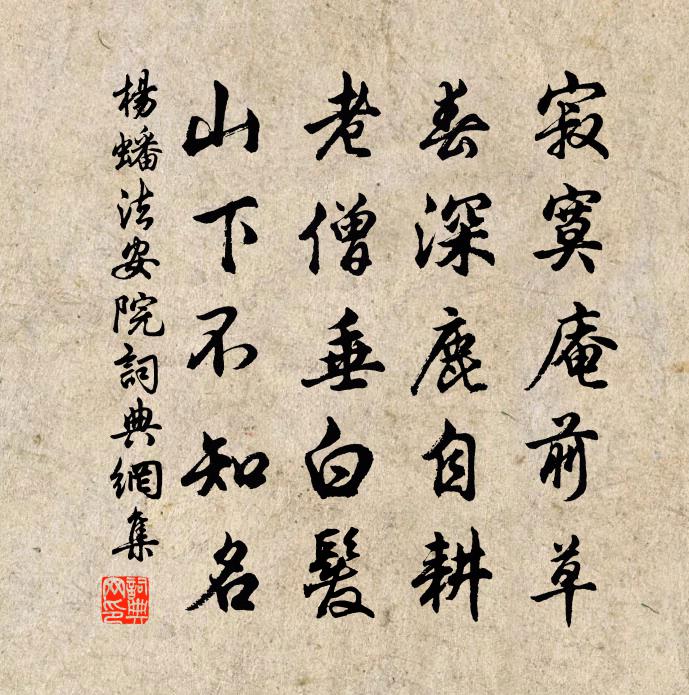 寂寞庵前草
春深鹿自耕
老僧垂白髮
山下不知名
楊蟠法安院詞典網集
詞典網印